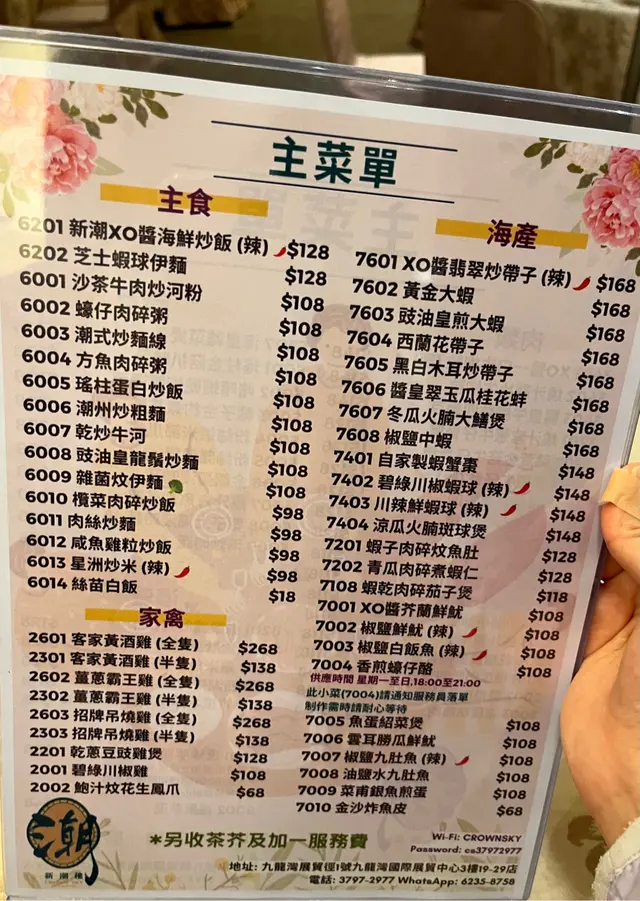 主菜單
主食
6201 新潮XO醬海鮮炒飯 (辣) $128
6202 芝士蝦球伊麵 $128
6001 沙茶牛肉炒河粉 $108
6002 蠔仔肉碎粥 $108
6003 潮式炒麵線 $108
6004 方魚肉碎粥 $108
6005 瑤柱蛋白炒飯 $108
6006 潮州炒粗麵 $108
6007 乾炒牛河 $108
6008 豉油皇龍鬚炒麵 $108
6009 雜菌炆伊麵 $108
6010 欖菜肉碎炒飯 $98
6011 肉絲炒麵 $98
6012 咸魚雞粒炒飯 $98
6013 星洲炒米 (辣) $98
6014 絲苗白飯 $18
家禽
2601 客家黃酒雞 (全隻) $268
2301 客家黃酒雞 (半隻) $138
2602 薑蔥霸王雞 (全隻) $268
2302 薑蔥霸王雞 (半隻) $138
2603 招牌吊燒雞 (全隻) $268
2303 招牌吊燒雞 (半隻) $138
2201 乾蔥豆豉雞煲 $128
2001 碧綠川椒雞 $108
2002 鮑汁炆花生鳳爪 $68
海產
7601 XO醬翡翠炒帶子 (辣) $168
7602 黃金大蝦 $168
7603 豉油皇煎大蝦 $168
7604 西蘭花帶子 $168
7605 黑白木耳炒帶子 $168
7606 醬皇翠玉瓜桂花蚌 $168
7607 冬瓜火腩大鱔煲 $168
7608 椒鹽中蝦 $168
7401 自家製蝦蟹棗 $148
7402 碧綠川椒蝦球 (辣) $148
7403 川辣鮮蝦球 (辣) $148
7404 涼瓜火腩斑球煲 $148
7201 蝦子肉碎炆魚肚 $128
7202 青瓜肉碎煮蝦仁 $128
7108 蝦乾肉碎茄子煲 $118
7001 XO醬芥蘭鮮魷 $108
7002 椒鹽鮮魷 (辣) $108
7003 椒鹽白飯魚 (辣) $108
7004 香煎蠔仔餎 $108
供應時間 星期一至日,18:00至21:00
此小菜(7004)請通知服務員落單
制作需時請耐心等待
7005 魚蛋紹菜煲 $108
7006 雲耳勝瓜鮮魷 $108
7007 椒鹽九肚魚 (辣) $108
7008 油鹽水九肚魚 $108
7009 菜甫銀魚煎蛋 $108
7010 金沙炸魚皮 $68
潮
新潮樓
*另收茶芥及加一服務費
Wi-Fi: CROWNSKY
Password: cs37972977
地址: 九龍灣展貿徑1號九龍灣國際展貿中心3樓19-29店
電話: 3797-2977 WhatsApp: 6235-8758